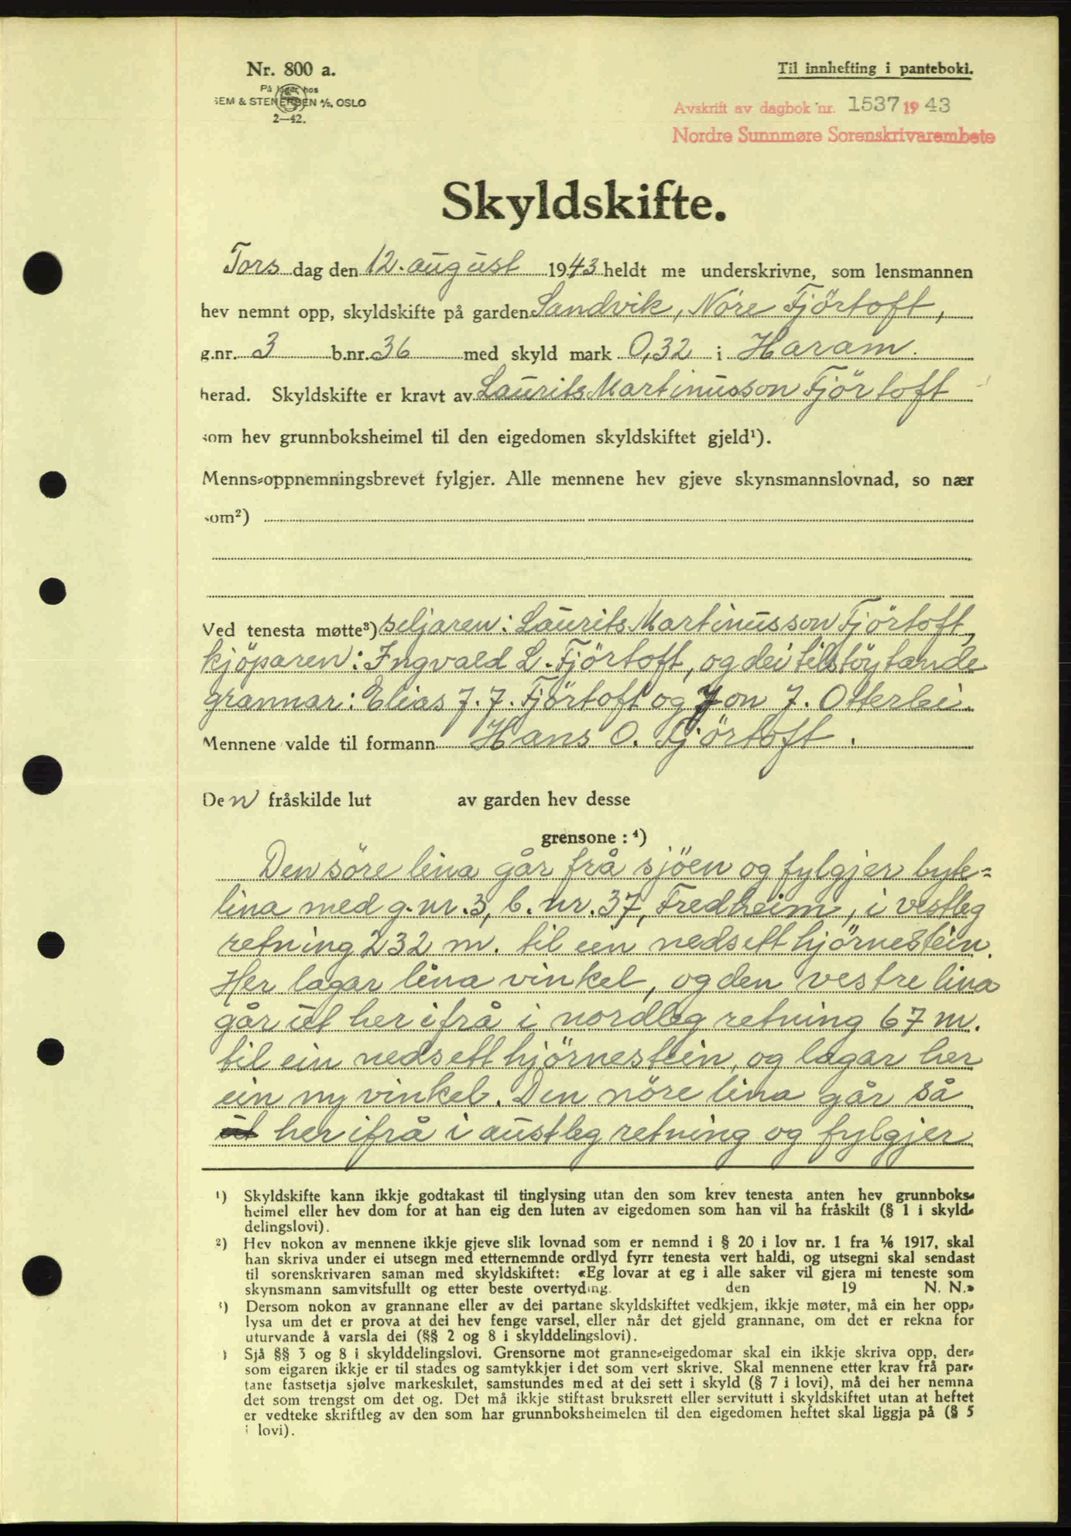 Nr. 800 a.
På lager hos
SEM & STENERSEN A/S, OSLO
2—42.
Til innhefting i panteboki.
Avskrift av dagbok nr. 1537 19 43
Nordre Sunnmøre Sorenskrivarembete
Skyldskifte.
Tors dag den 12. august 1943 heldt me underskrivne, som lensmannen
hev nemnt opp, skyldskifte på garden Sandvik, Nöre Fjörtoft,
g.nr. 3 b.nr. 36 med skyld mark 0,32 i Haram.
herad. Skyldskifte er kravt av Laurits Martinusson Fjörtoft
som hev grunnboksheimel til den eigedomen skyldskiftet gjeld¹).
Menns-oppnemningsbrevet fylgjer. Alle mennene hev gjeve skynsmannslovnad, so nær
som²)
Ved tenesta møtte³) seljaren: Laurits Martinusson Fjörtoft,
kjöparen: Ingvald L. Fjörtoft, og dei tilstöytande
grannar: Elias J. J. Fjörtoft og Jon J. Otterlei.
Mennene valde til formann Hans O. Fjörtoft.
Den fråskilde lut av garden hev desse
grensone: ⁴)
Den söre lina går frå sjöen og fylgjer byte=
lina med g.nr. 3, b.nr. 37, Fredheim, i vestleg
retning 232 m. til ein nedsett hjörnestein.
Her lagar lina vinkel, og den vestre lina
går ut her ifrå i nordleg retning 67 m.
til ein nedsett hjörnestein, og lagar her
ein ny vinkel. Den nöre lina går så
ut her ifrå i austleg retning og fylgjer
¹) Skyldskifte kann ikkje godtakast til tinglysing utan den som krev tenesta anten hev grunnboks-
heimel eller hev dom for at han eig den luten av eigedomen som han vil ha fråskilt (§ 1 i skyld-
delingslovi).
²) Hev nokon av mennene ikkje gjeve slik lovnad som er nemnd i § 20 i lov nr. 1 fra ⅙ 1917, skal
han skriva under ei utsegn med etternemnde ordlyd fyrr tenesta vert haldi, og utsegni skal sendast
til sorenskrivaren saman med skyldskiftet: «Eg lovar at eg i alle saker vil gjera mi teneste som
skynsmann samvitsfullt og etter beste overtyding. den 19 N. N.»
³) Dersom nokon av grannane eller av dei partane skyldskiftet vedkjem, ikkje møter, må ein her opp-
lysa um det er prova at dei hev fenge varsel, eller når det gjeld grannane, om det er rekna for
uturvande å varsla dei (§§ 2 og 8 i skylddelingslovi).
) Sjå §§ 3 og 8 i skylddelingslovi. Grensorne mot granne-eigedomar skal ein ikkje skriva opp, der-
som eigaren ikkje er til stades og samtykkjer i det som vert skrive. Skal mennene etter krav frå par-
tane fastsetja sjølve markeskilet, samstundes med at dei sett i skyld (§ 7 i lovi), må dei her nemna
det som trengst om det og. Det må ikkje stiftast bruksrett eller servitutt i skyldskiftet utan at heftet
er vedteke skriftleg av den som har grunnboksheimelen til den eigedomen heftet skal liggja på (§ 5
i lovi).